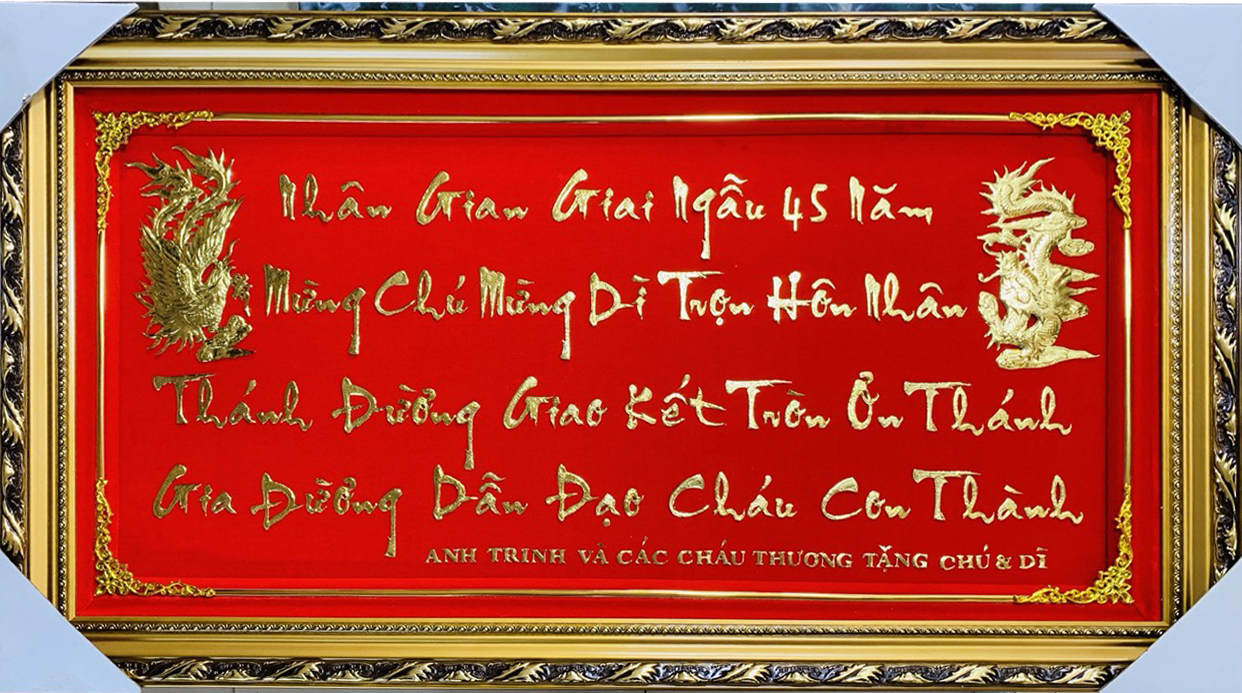 Nhân Gian Giai Ngẫu 45 Năm
Mừng Chú Mừng Dì Trọn Hôn Nhân
Thánh Đường Giao Kết Tròn Ơn Thánh
Gia Đường Dẫn Đạo Cháu Con Thành
ANH TRINH VÀ CÁC CHÁU THƯƠNG TẶNG CHÚ & DÌ